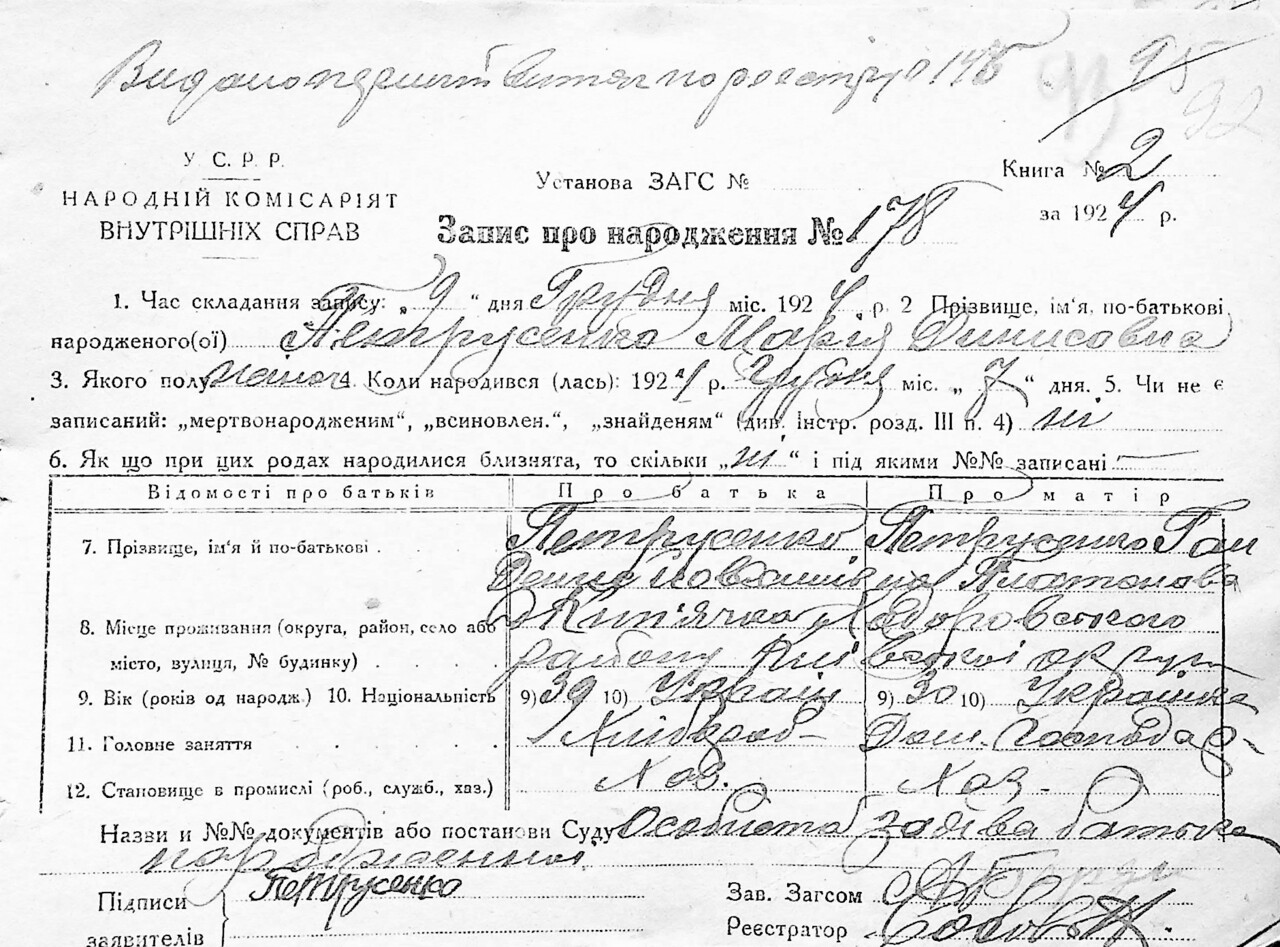 Видано п витяг по реєстру 145
95
93
92
У. С. Р. Р.
НАРОДНІЙ КОМІСАРІЯТ
ВНУТРІШНІХ СПРАВ
Установа ЗАГС №
Книга № 2
за 1924 р.
Запис про народження № 178
1. Час складання запису: „ 9 “ дня Грудня міс. 1924 р. 2 Прізвище, ім‘я, по-батькові
народженого(ої) Петрусенко Марія Динисовна
3. Якого полу жіноч 4. Коли народився (лась): 1924 р. Грудня міс. „ 7 “ дня. 5. Чи не є
записаний: „мертвонародженим“, „всиновлен.“, „знайденям“ (див. Інстр. розд. III п. 4) ні
6. Як що при цих родах народилися близнята, то скільки „ ні “ і під якими №№ записані —
Відомості про батьків Про батька Про матір
7. Прізвище, ім‘я й по-батькові . Петрусенко Петрусенко Ган
Денис на Платонова
8. Місце проживання (округа, район, село або Кип'ячка
місто, вулиця, № будинку) . . . . району Київської округи
9. Вік (років од народж.) 10. Національність 9) 39 10) Україн 9) 30 10) Українка
11. Головне заняття . . . . . Хлібороб- Дом. Господар-
12. Становище в промислі (роб., служб., хаз.) Хоз. Хоз.
Назви и №№ документів або постанови Суду Особиста заява батька
народженної
Підписи
заявителів
Петрусенко
Зав. Загсом
Реєстратор